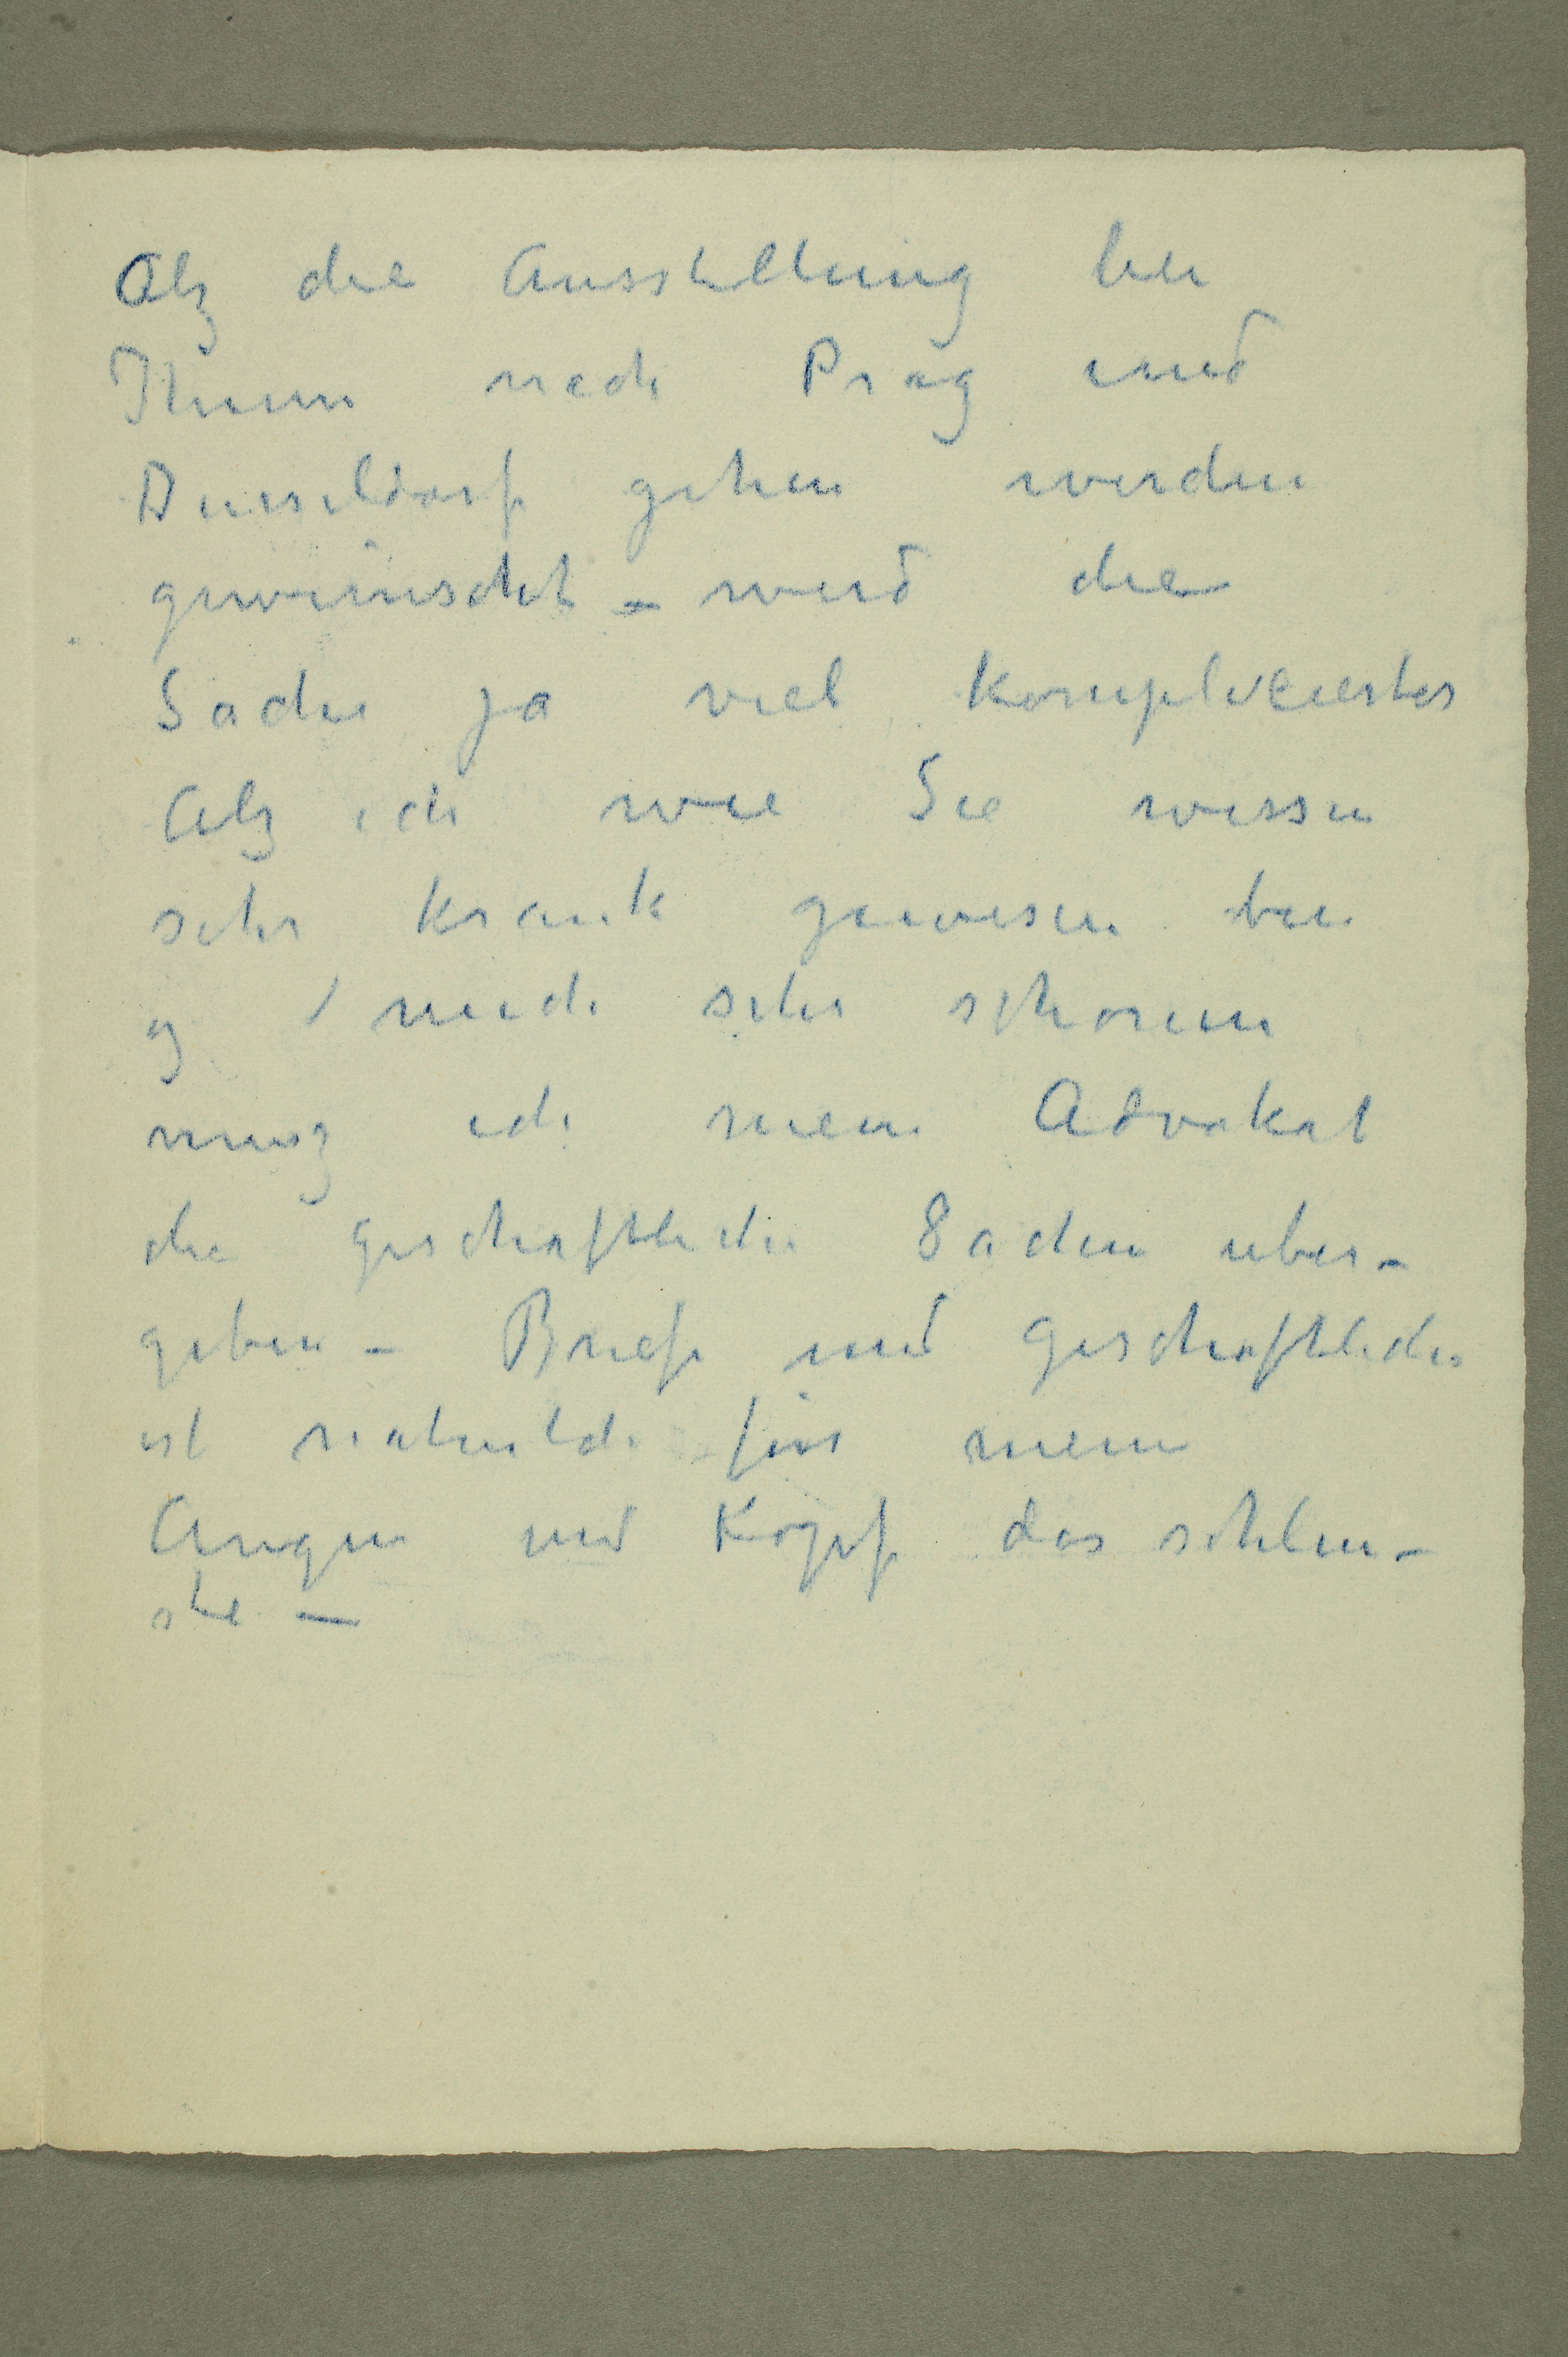 Alz die Ausstellung bei
Ihnen nach Prag und
Dusseldorf gehen werden
gewünscht – wird die
Sache ja viel kompliciertes
Alz ich wie Sie wissen
sehr krank gewesen bin
mich sehr schonen
musz ich mein Advokat
die geschaftliche Sachen uber-
geben – Briefe und Geschaftliches
ist naturlich für meine
Augen und Kopf das schlim-
ste —